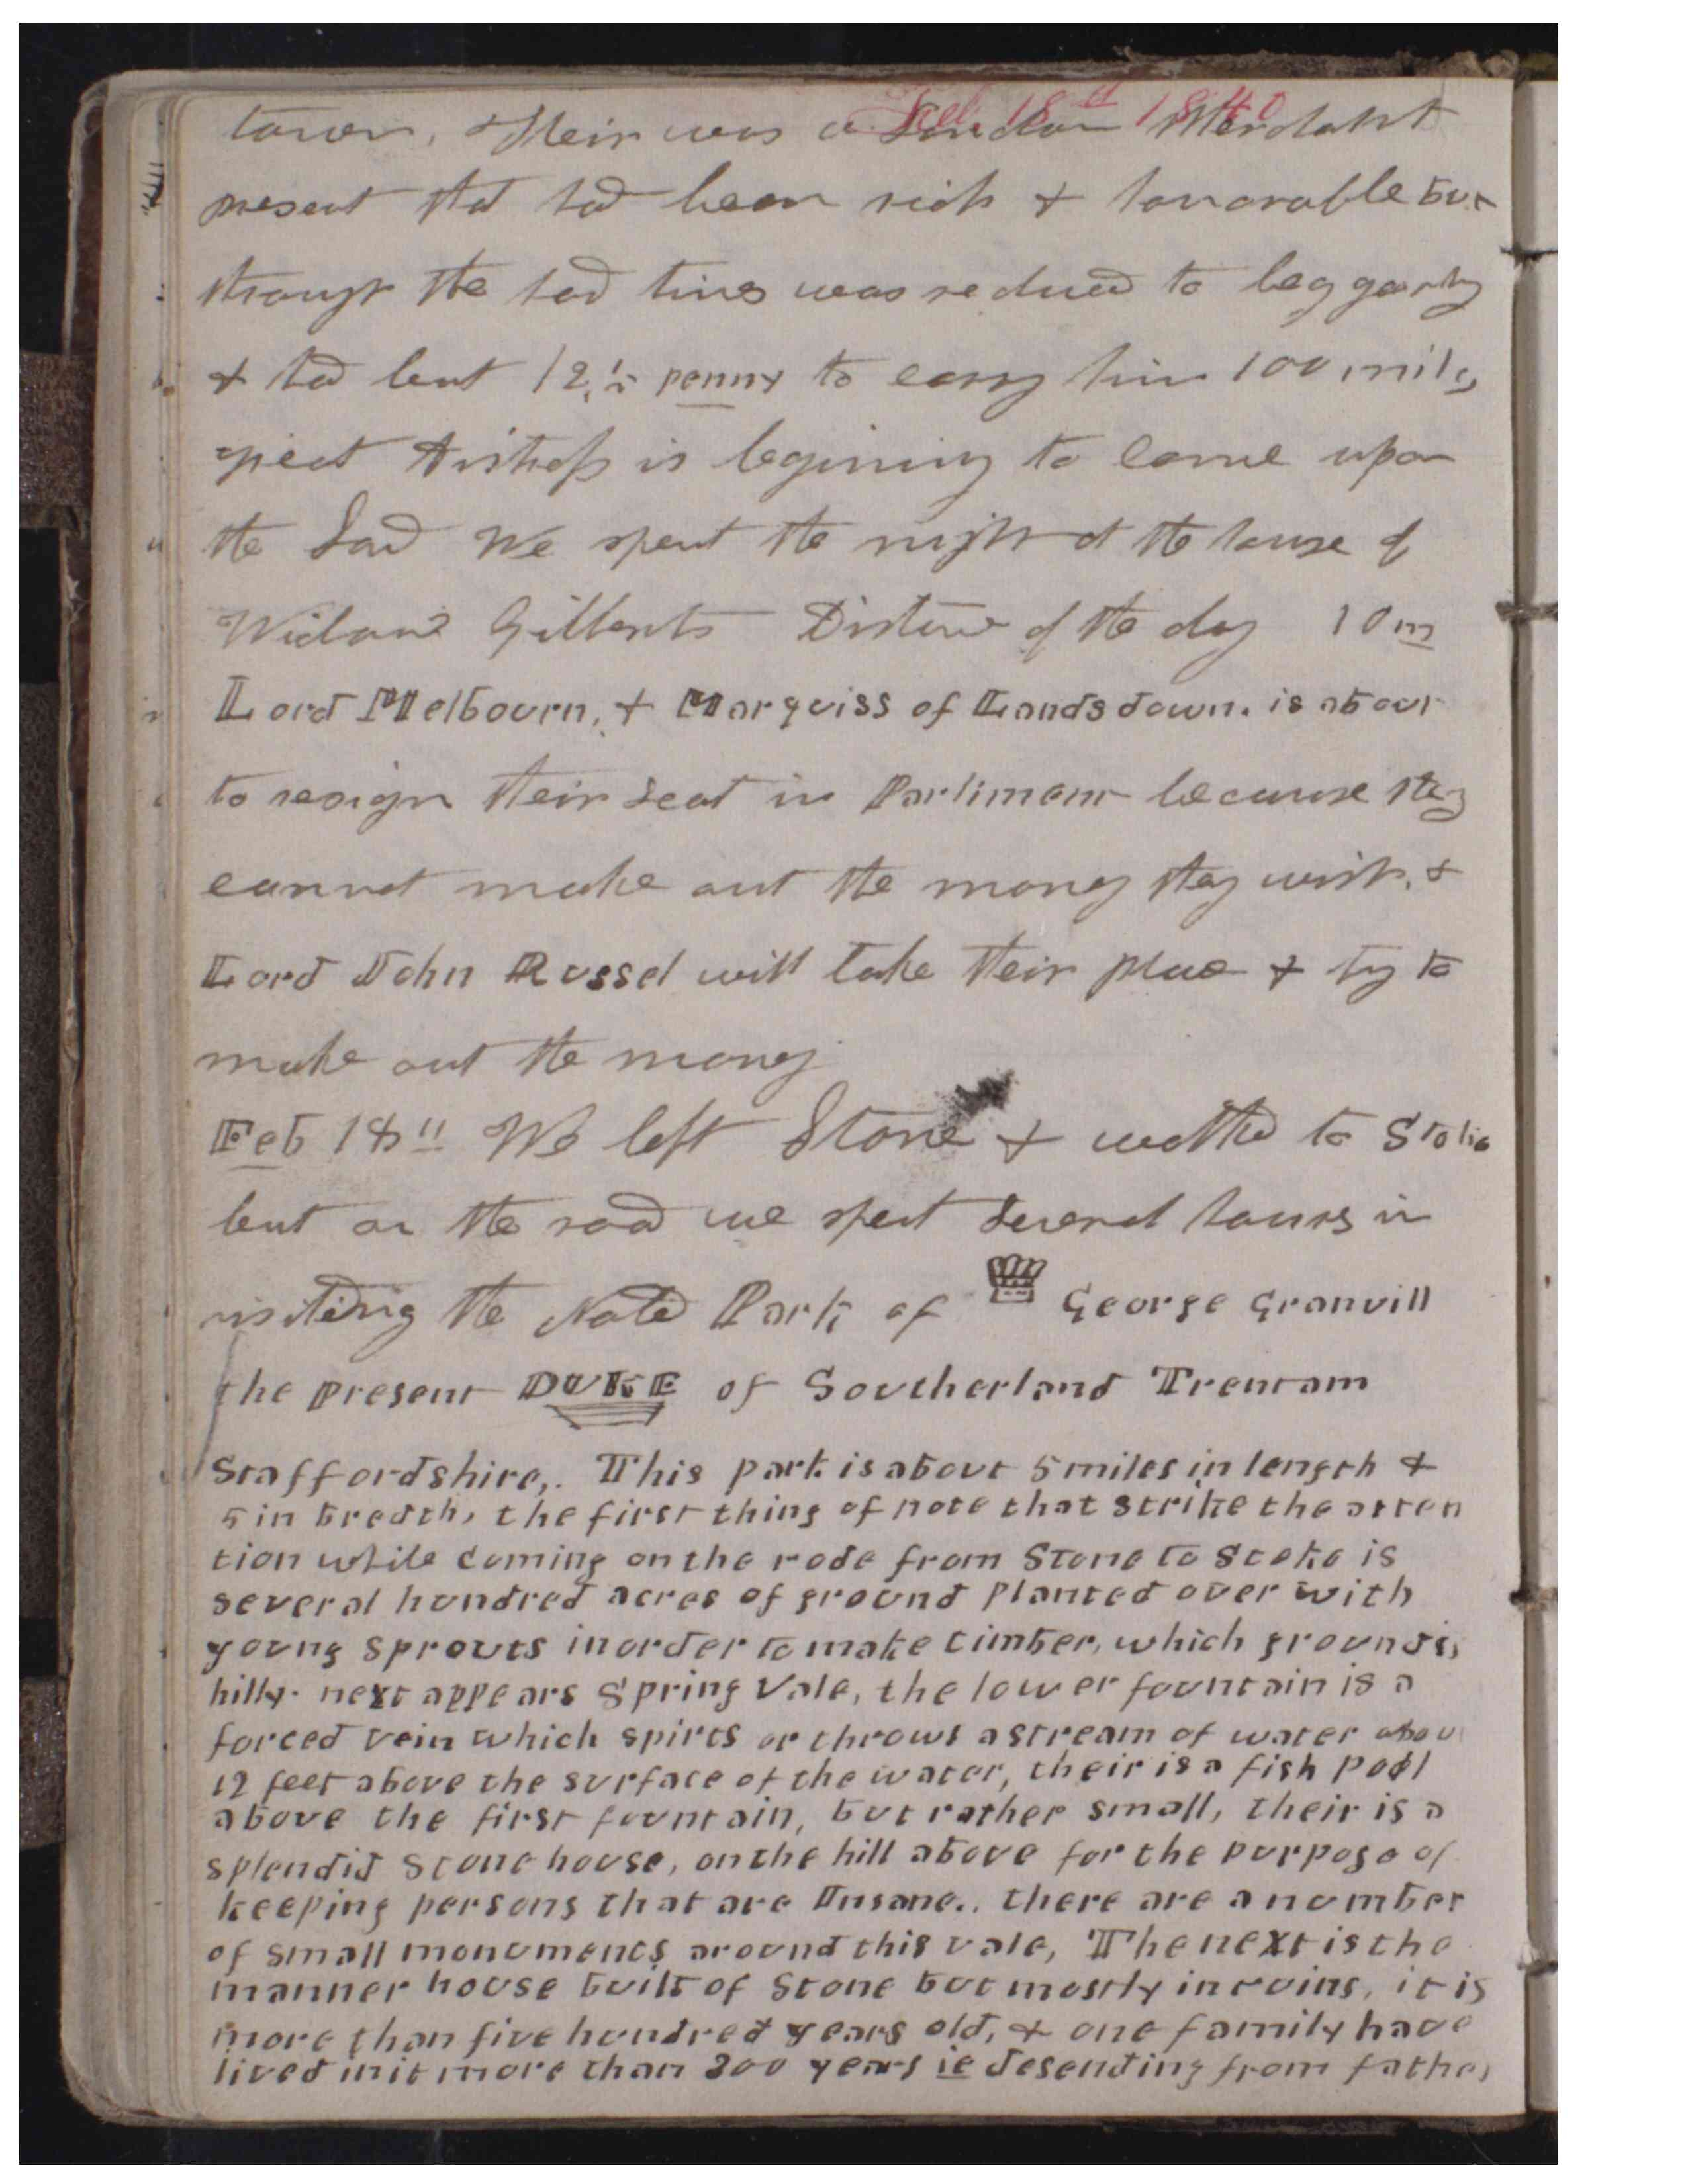 Feb 18th 1840
town, their was a London Merchant
present that had been rich & honorable but
through the had times was reduced to beggarly
& had but 12,½ penny to carry him 100 miles
great distress is begining to come upon
the Land We spent the night at the house of
Widow Gilberts Distance of the day 10 m
Lord Melbourn, & Marquiss of Landsdown. is about
to resign their seat in Parliment because they
cannot make out the money they wish, &
Lord John Russel will take their place & try to
make out the money
Feb 18th We left Stone & walked to Stoke
but on the road we spent several hours in
visiting the Noted Park of George Granvill
the present DUKE of Southerland Trentam
Staffordshire,. This park is about 5 miles in length &
5 in bredth, the first thing of note that strike the atten
tion while coming on the rode from Stone to Stoke is
several hundred acres of ground planted over with
young sprouts in order to make timber, which ground is,
hilly. next appears Spring Vale, the lower fountain is a
forced vein which spirts or throws a stream of water abou
12 feet above the surface of the water, their is a fish pool
above the first fountain, but rather small, their is a
splendid stone house, on the hill above for the purpose of
keeping persons that are Insane.. there are a number
of small monuments around this vale, The next is the
manner house built of Stone but mostly in ruins, it is
more than five hundred years old, & one family have
lived in it more than 300 years ie desending from father